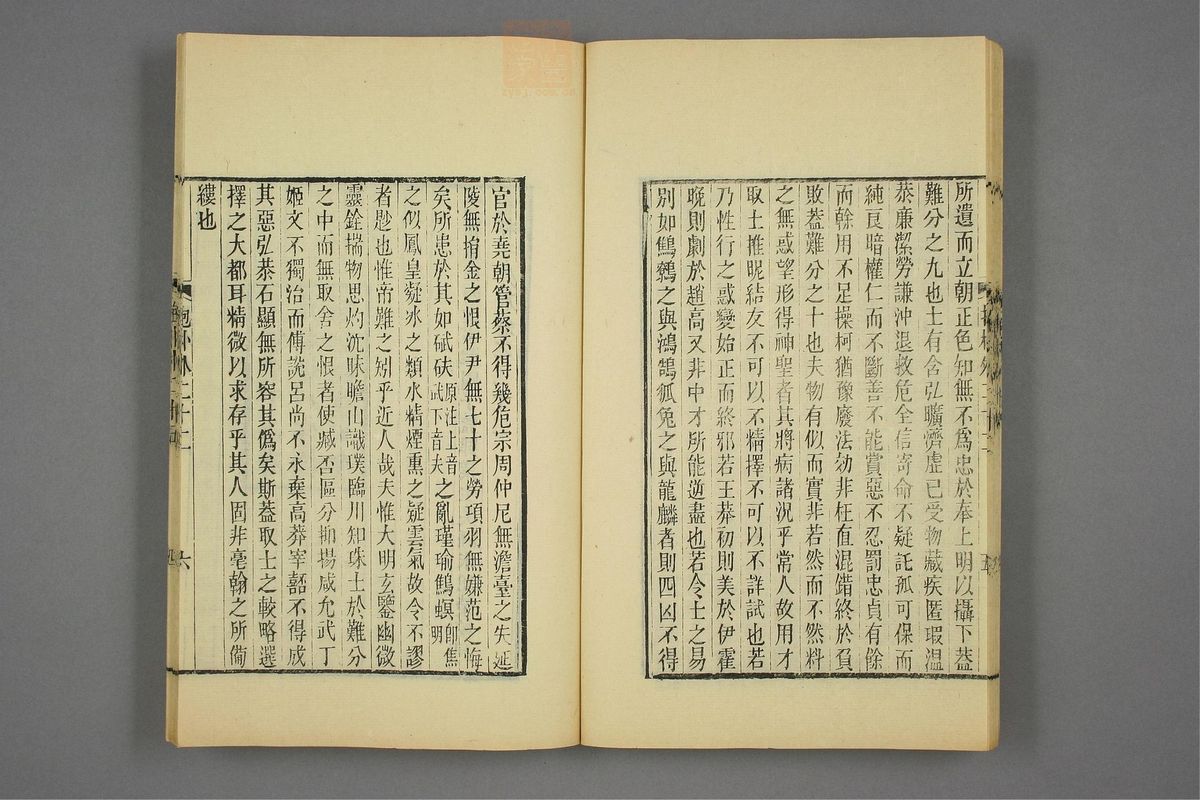 所遺而立朝正色知無不爲忠於奉上明以攝下葢
難分之九也士有含弘曠濟虛己受物藏疾匿瑕溫
恭廉潔勞謙沖退救危全信寄命不疑託孤可保而
純良暗權仁而不斷善不能賞惡不忍罰忠貞有餘
而幹用不足操柯猶豫廢法効非枉直混錯終於負
敗葢難分之十也夫物有似而實非若然而不然料
之無惑望形得神聖者其將病諸況乎常人故用才
取士推昵結友不可以不精擇不可以不詳試也若
乃性行之惑變始正而終邪若王莽初則美於伊霍
晚則劇於趙高又非中才所能逆盡也若令士之易
別如鷦鷯之與鴻鵠狐兔之與龍麟者則四凶不得
官於堯朝管蔡不得幾危宗周仲尼無澹臺之失延
陵無捐金之恨伊尹無七十之勞項羽無嫌范之悔
矣所患於其如碔砆原注上音武下音夫之亂瑾瑜鷦螟卽焦明
之似鳳皇凝冰之類水精煙熏之疑雲氣故令不謬
者尟也惟帝難之矧乎近人哉夫惟大明玄鑒幽微
靈銓揣物思灼沈昧瞻山識璞臨川知珠士於難分
之中而無取舍之恨者使臧否區分抑揚咸允武丁
姬文不獨治而傅說呂尚不永棄高莽宰嚭不得成
其惡弘恭石顯無所容其僞矣斯葢取士之較略選
擇之大都耳精微以求存乎其人固非毫翰之所備
縷也
抱朴外二十二
六